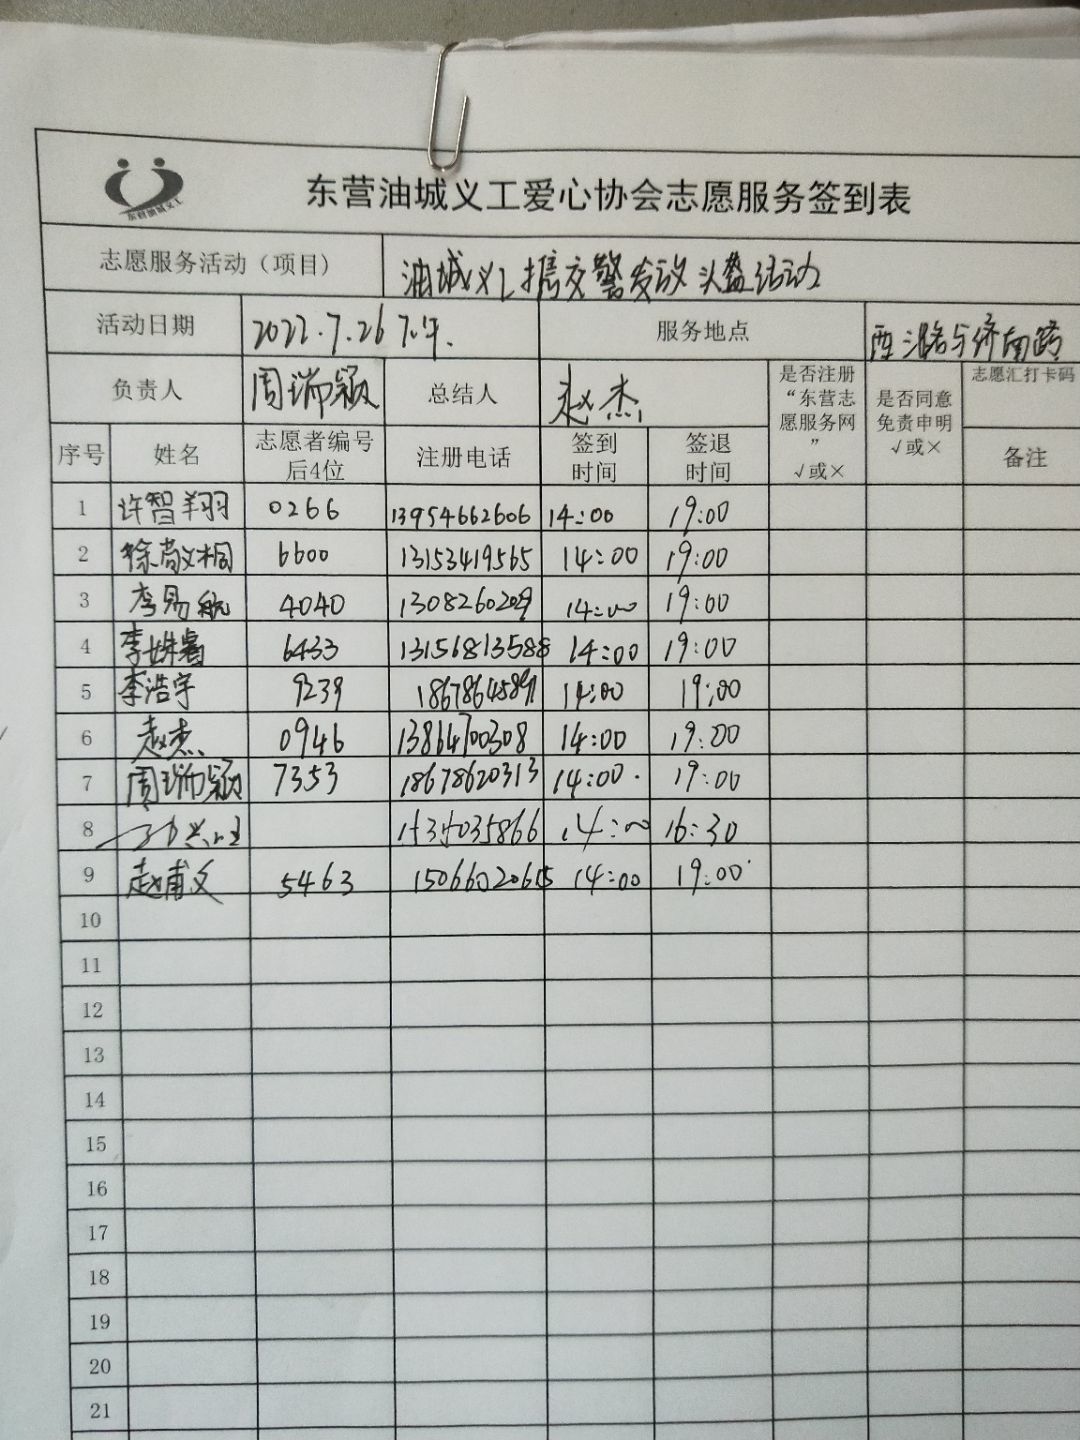 东营油城义工
东营油城义工爱心协会志愿服务签到表
志愿服务活动（项目） 油城义工携交警发放头盔活动
活动日期 2022.7.26 下午. 服务地点 西二路与济南路
负责人 周瑞颖 总结人 赵杰 是否注册“东营志愿服务网” √或× 是否同意免责申明 √或× 志愿汇打卡码
序号 姓名 志愿者编号后4位 注册电话 签到时间 签退时间 备注
1 许智翔 0266 13954662606 14:00 19:00
2 徐尚义桐 6600 13153419565 14:00 19:00
3 李易航 4040 1308260209 14:00 19:00
4 李姝睿 6433 13156813588 14:00 19:00
5 李浩宇 9239 14:00 19:00
6 赵杰 0946 13864700308 14:00 19:00
7 周瑞颖 7353 18678620313 14:00 19:00
8 14:00 16:30
9 赵甫义 5463 14:00 19:00
10
11
12
13
14
15
16
17
18
19
20
21